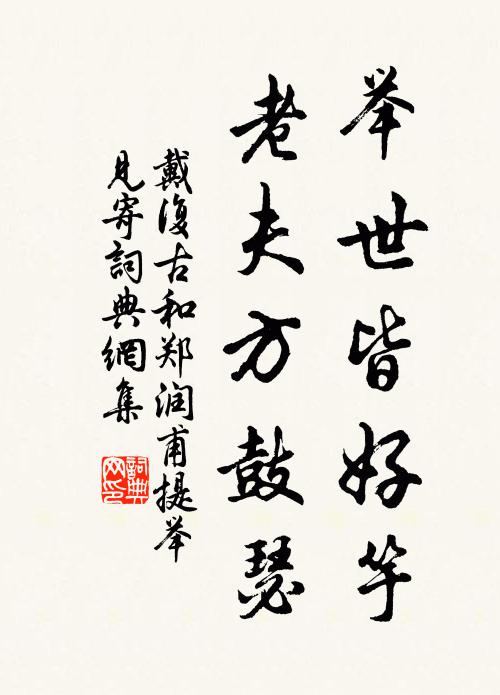 举世皆好竽
老夫方鼓瑟
戴復古和郑润甫提举
見寄詞典網集
詞典
网印